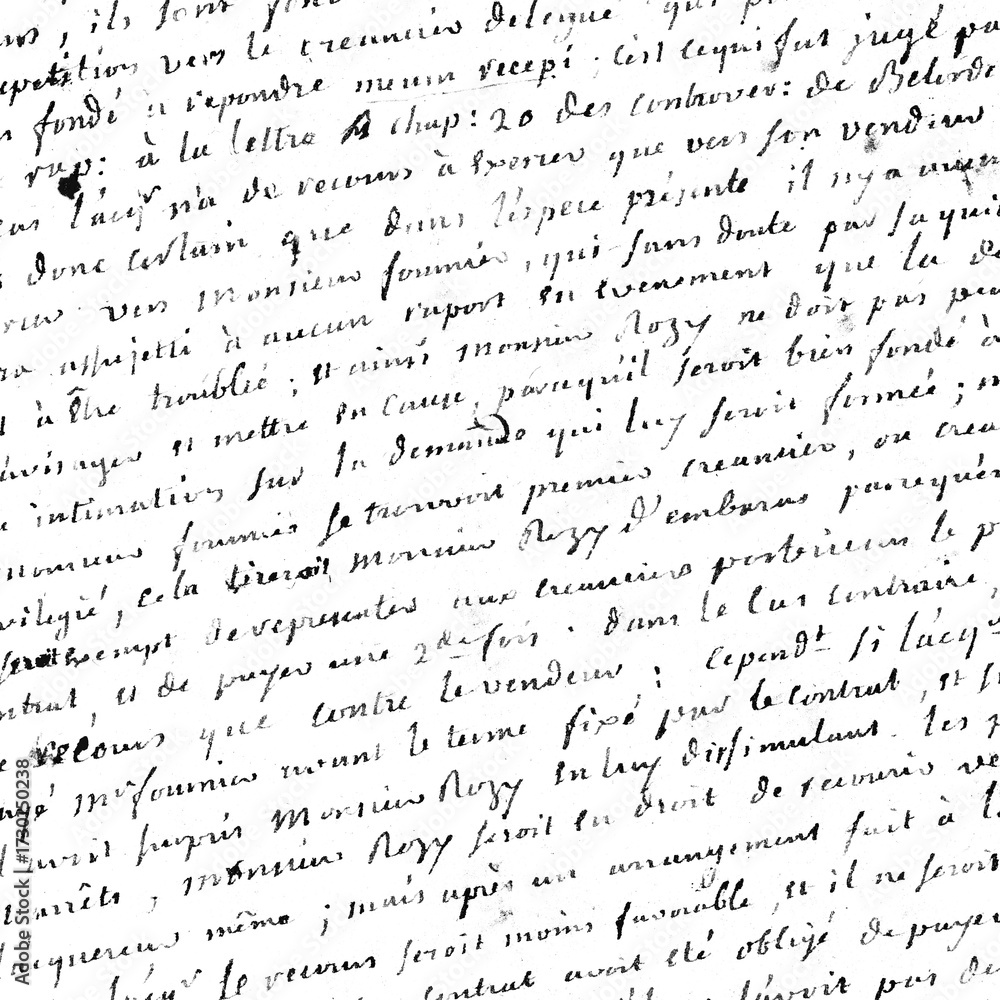 ils sont
repetition vers le creancier delegué qui
fondé a répondre meum recepi ; c'est ce qui fut jugé pa
rap: à la lettre A chap: 20 des controver: de Belorde
cas l'acqr n'a de recours à exercer que vers son vendeur
donc certain que dans l'espece présente il n'y a aucun
vers Monsieur fournier, qui sans doute par sa qui
assujetti à aucun raport en evenement que la de
à être troublé ; et ainsi Monsieur Rozy ne doit pas
envisager et mettre en cause, parcequ'il seroit bien fondé à
intimations sur la demande qui luy seroit formée ;
Monsieur fournier se trouvoit premier creancier, ou crea
vilegié, cela tireroit Monsieur Rozy d'embaras parcequ'e
seroit exempt de representer aux creanciers porterieurs le p
ntrat, et de payer une 2de fois . dans le cas contraire,
recours que contre le vendeur ; cependt si l'acqr
Mr fournier avant le terme fixé par le contrat, et s
avoit surpris Monsieur Rozy en luy dissimulant les
arrêts, Monsieur Rozy seroit en droit de recourir ve
acquereur même ; mais après un arrangement fait à l
l'acqr le recours seroit moins favorable, et il ne seroit
contrat avoit eté obligé de payer
pas de
Adobe Stock | #1730250238